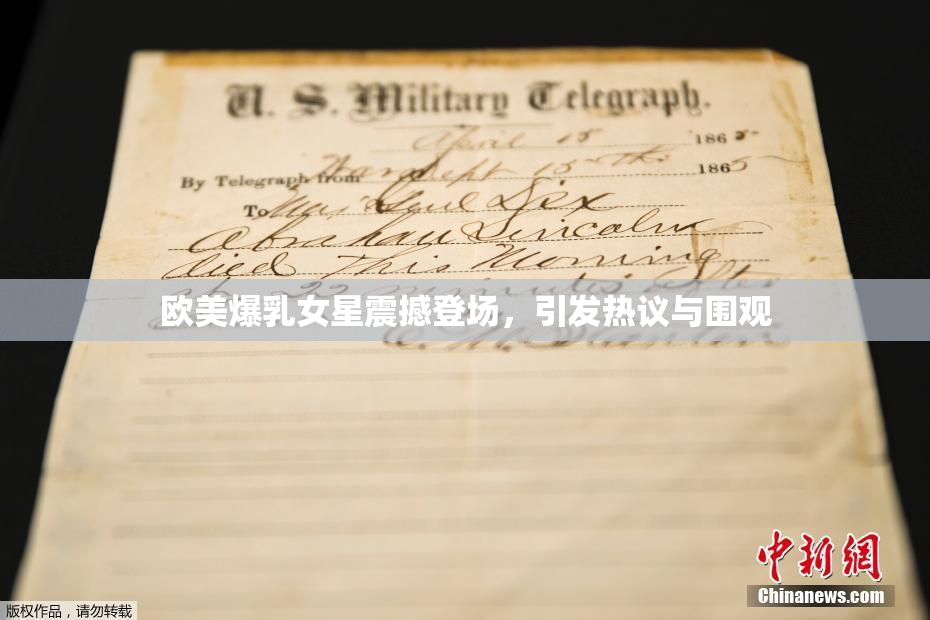 U. S. Military Telegraph.
April 15 1865
By Telegraph from War Dept 15th 1865
To Maj Genl Dix
Abraham Lincoln
died This Morning
at 22 minutes after
欧美爆乳女星震撼登场，引发热议与围观
E. M. Stanton
中新网
Chinanews.com
版权作品，请勿转载